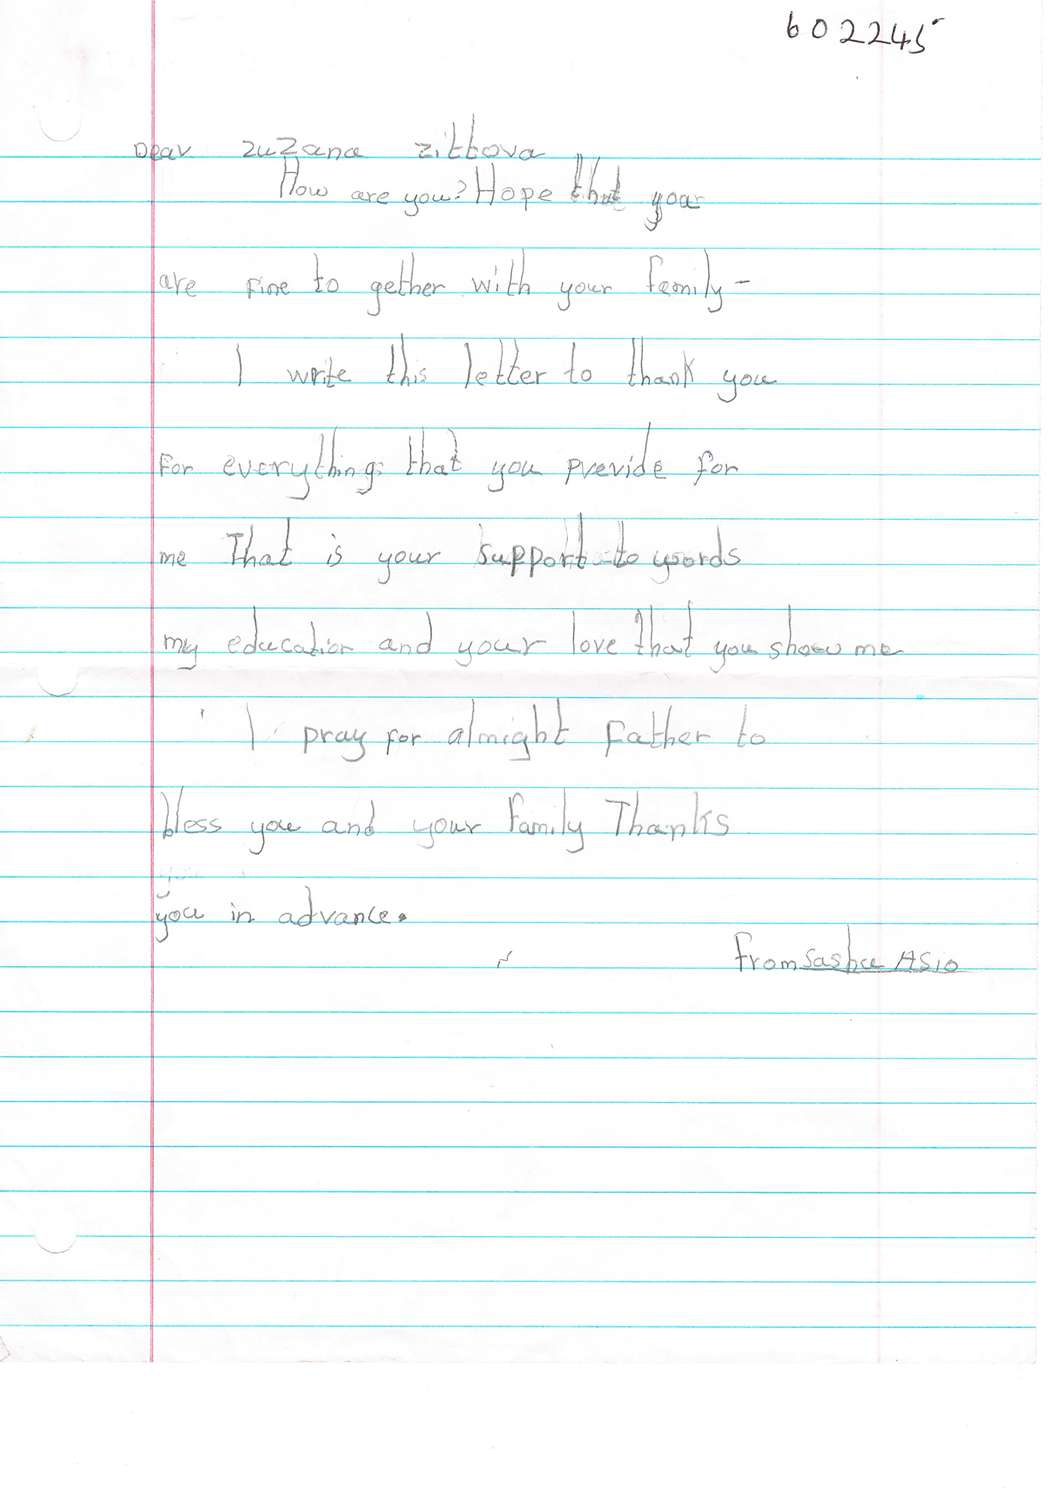 602245
Dear zuzana zittova
How are you? Hope that you
are fine to gether with your family-
I write this letter to thank you
For everything that you previde for
me That is your support to words
my education and your love that you show me
I pray for almight Father to
bless you and your family Thanks
you in advance.
From Sasha Asio